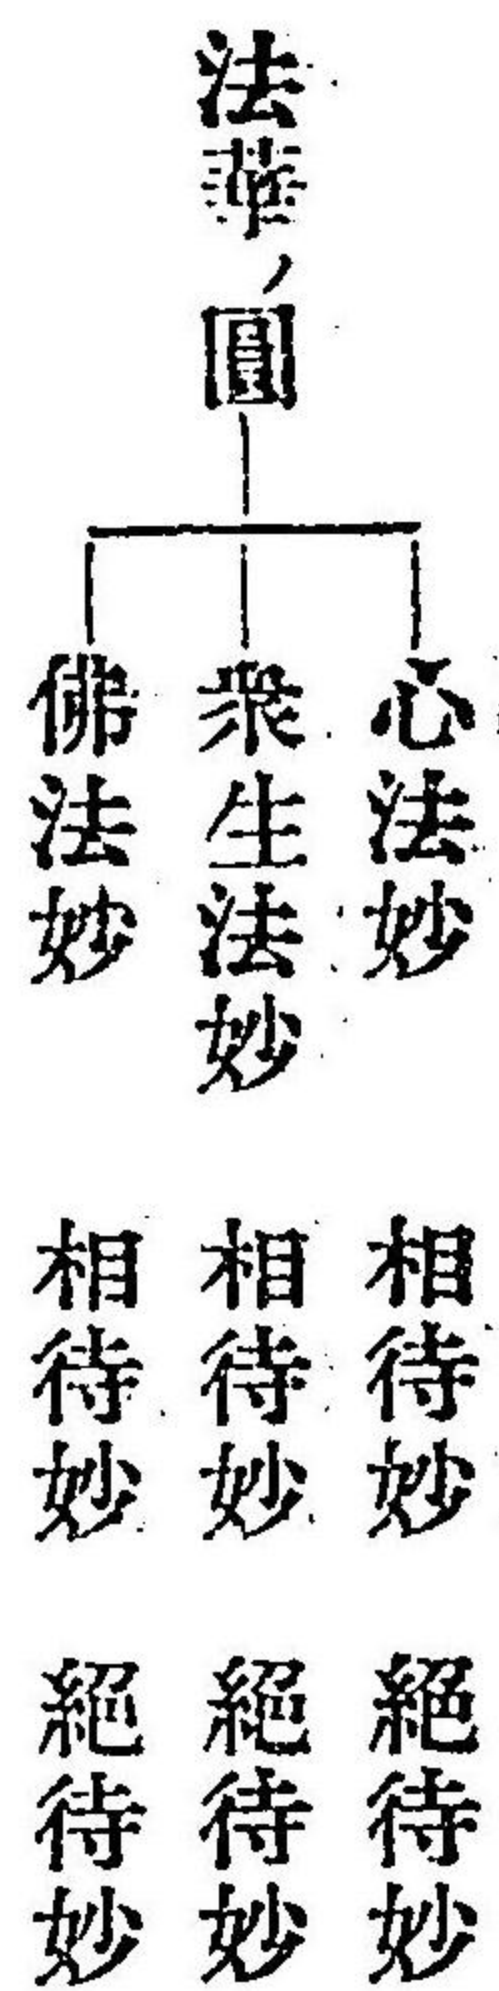 法華ノ圓
心法妙　相待妙　絕待妙
衆生法妙　相待妙　絕待妙
佛法妙　相待妙　絕待妙